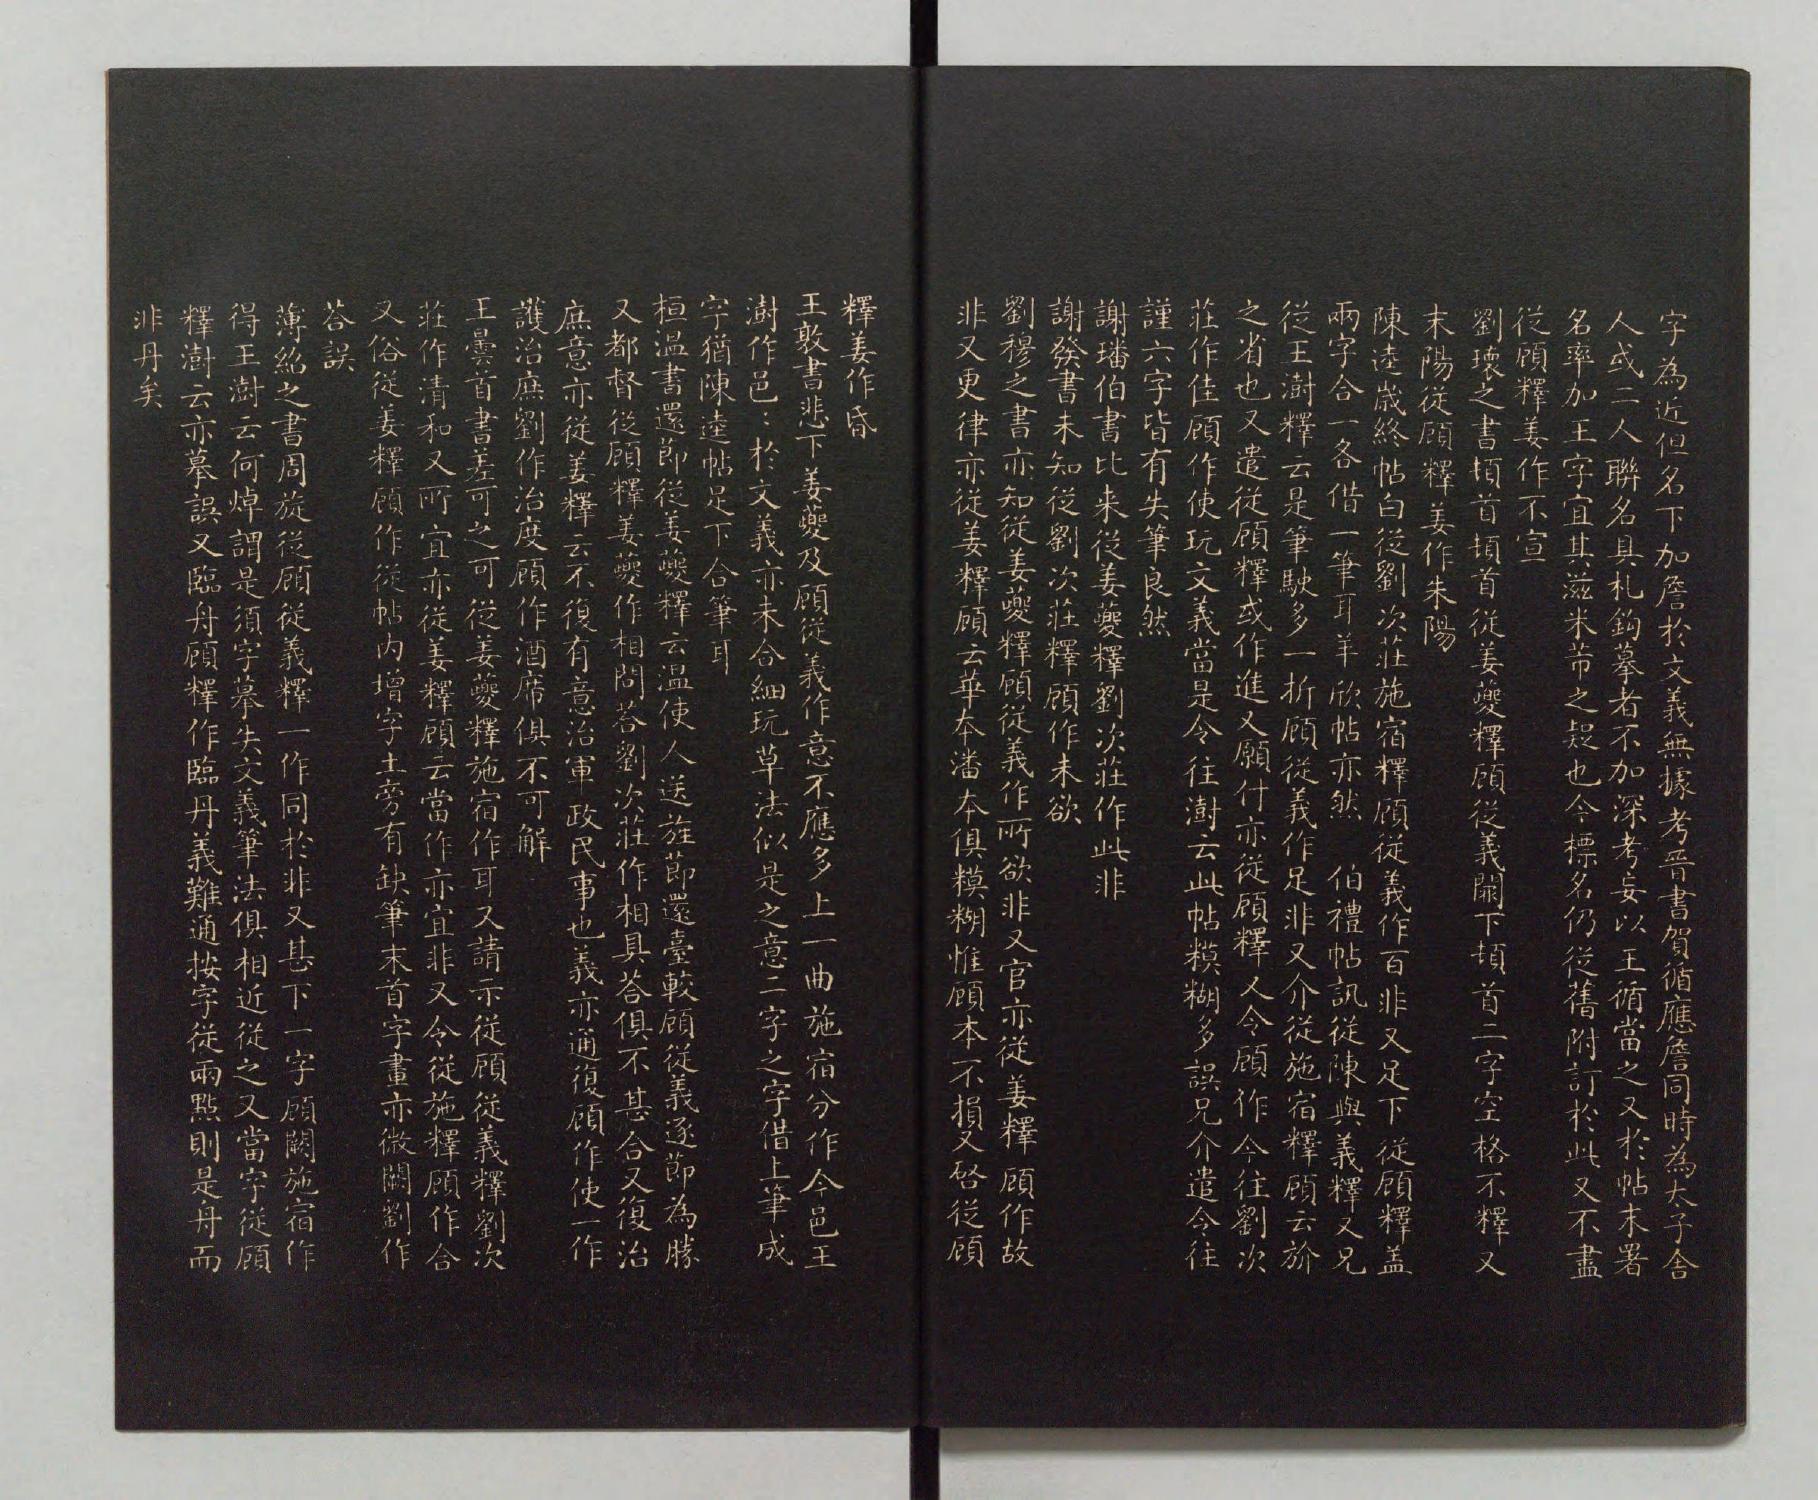 字為近但名下加詹於文義無據考晉書賀循應詹同時為太子舍
人或二人聯名具札鉤摹者不加深考妄以王循當之又於帖末署
名率加王字宜其滋米芾之疑也今標名仍從舊附訂於此又不盡
從顧釋姜作不宣
劉瓌之書頓首頓首從姜夔釋顧從義闕下頓首二字空格不釋又
末陽從顧釋姜作朱陽
陳逵歲終帖白從劉次莊施宿釋顧從義作百非又足下從顧釋盖
兩字合一各借一筆耳羊欣帖亦然 伯禮帖訊從陳與義釋又兄
從王澍釋云是筆駛多一折顧從義作足非又介從施宿釋顧云於
之省也又遣從顧釋或作進又願什亦從顧釋又令顧作今往劉次
莊作佳顧作使玩文義當是令往澍云此帖糢糊多誤兄介遣令往
謹六字皆有失筆良然
謝璠伯書比来從姜夔釋劉次莊作此非
謝發書未知從劉次莊釋顧作未欲
劉穆之書亦知從姜夔釋顧從義作所欲非又官亦從姜釋顧作故
非又更律亦從姜釋顧云華本潘本俱糢糊惟顧本不損又啓從顧
釋姜作昏
王敦書悲下姜夔及顧從義作意不應多上一曲施宿分作今邑王
澍作邑：於文義亦未合細玩草法似是之意二字之字借上筆成
字猶陳逵帖足下合筆耳
桓温書還節從姜夔釋云温使人送旌節還臺較顧從義逐節為勝
又都督從顧釋姜夔作相問荅劉次莊作相具荅俱不甚合又復治
庶意亦從姜釋云不復有意治軍政民事也義亦通復顧作使一作
護治庶劉作治度顧作酒席俱不可解
王曇首書差可之可從姜夔釋施宿作耳又請示從顧從義釋劉次
莊作清和又所宜亦從姜釋顧云當作亦宜非又令從施釋顧作合
又俗從姜釋顧作從帖内增字土旁有缺筆末首字畫亦微闕劉作
荅誤
薄紹之書周旋從顧從義釋一作同於非又甚下一字顧闕施宿作
得王澍云何焯謂是須字摹失文義筆法俱相近從之又當字從顧
釋澍云亦摹誤又臨舟顧釋作臨丹義難通按字從兩點則是舟而
非丹矣